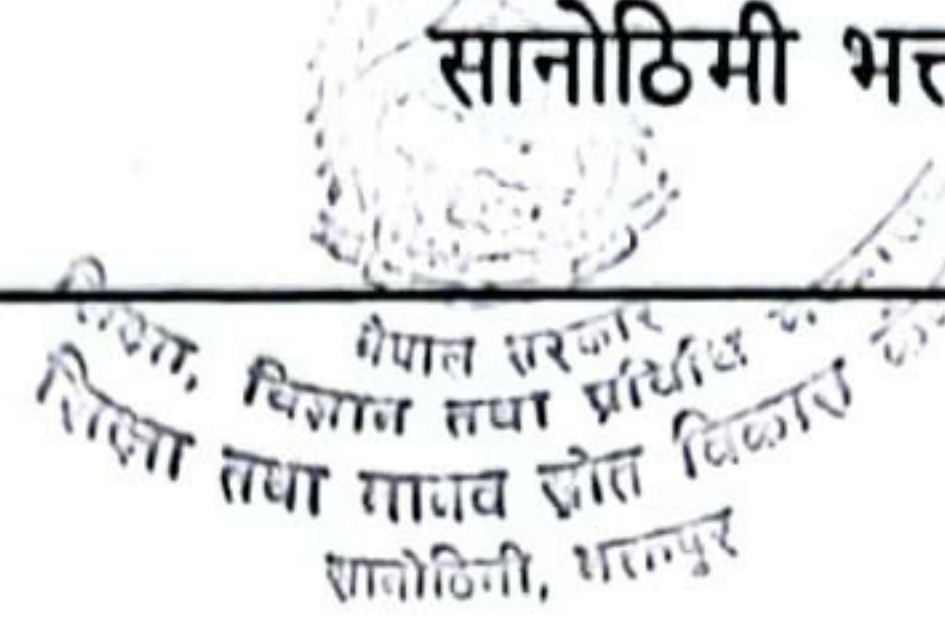 सानोठिमी भक्त
नेपाल सरकार
शिक्षा, विज्ञान तथा प्रविधि
शिक्षा तथा मानव स्रोत विकास
सानोठिमी, भक्तपुर